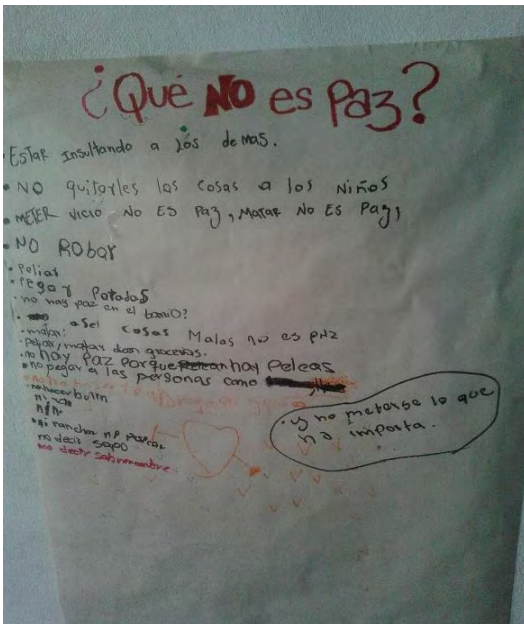 ¿Qué NO es Paz?
• ESTAR Insultando a los demas.
• NO quitarles las cosas a los Niños
• METER vicio No ES Paz, Matar No ES Paz,
• NO RObar
• Peliar
• Pegar Patadas
• no hay paz en el barriO?
• aser cosas Malas no es pAz
• matar:
• Peliar, matar desir groserias.
• no hay Paz Porque hay Peleas
• no pegar a las personas como
• no hacer bulin
ni
no decir sapo
no decir sobrenombre.
• y no meterse lo que
no importa.